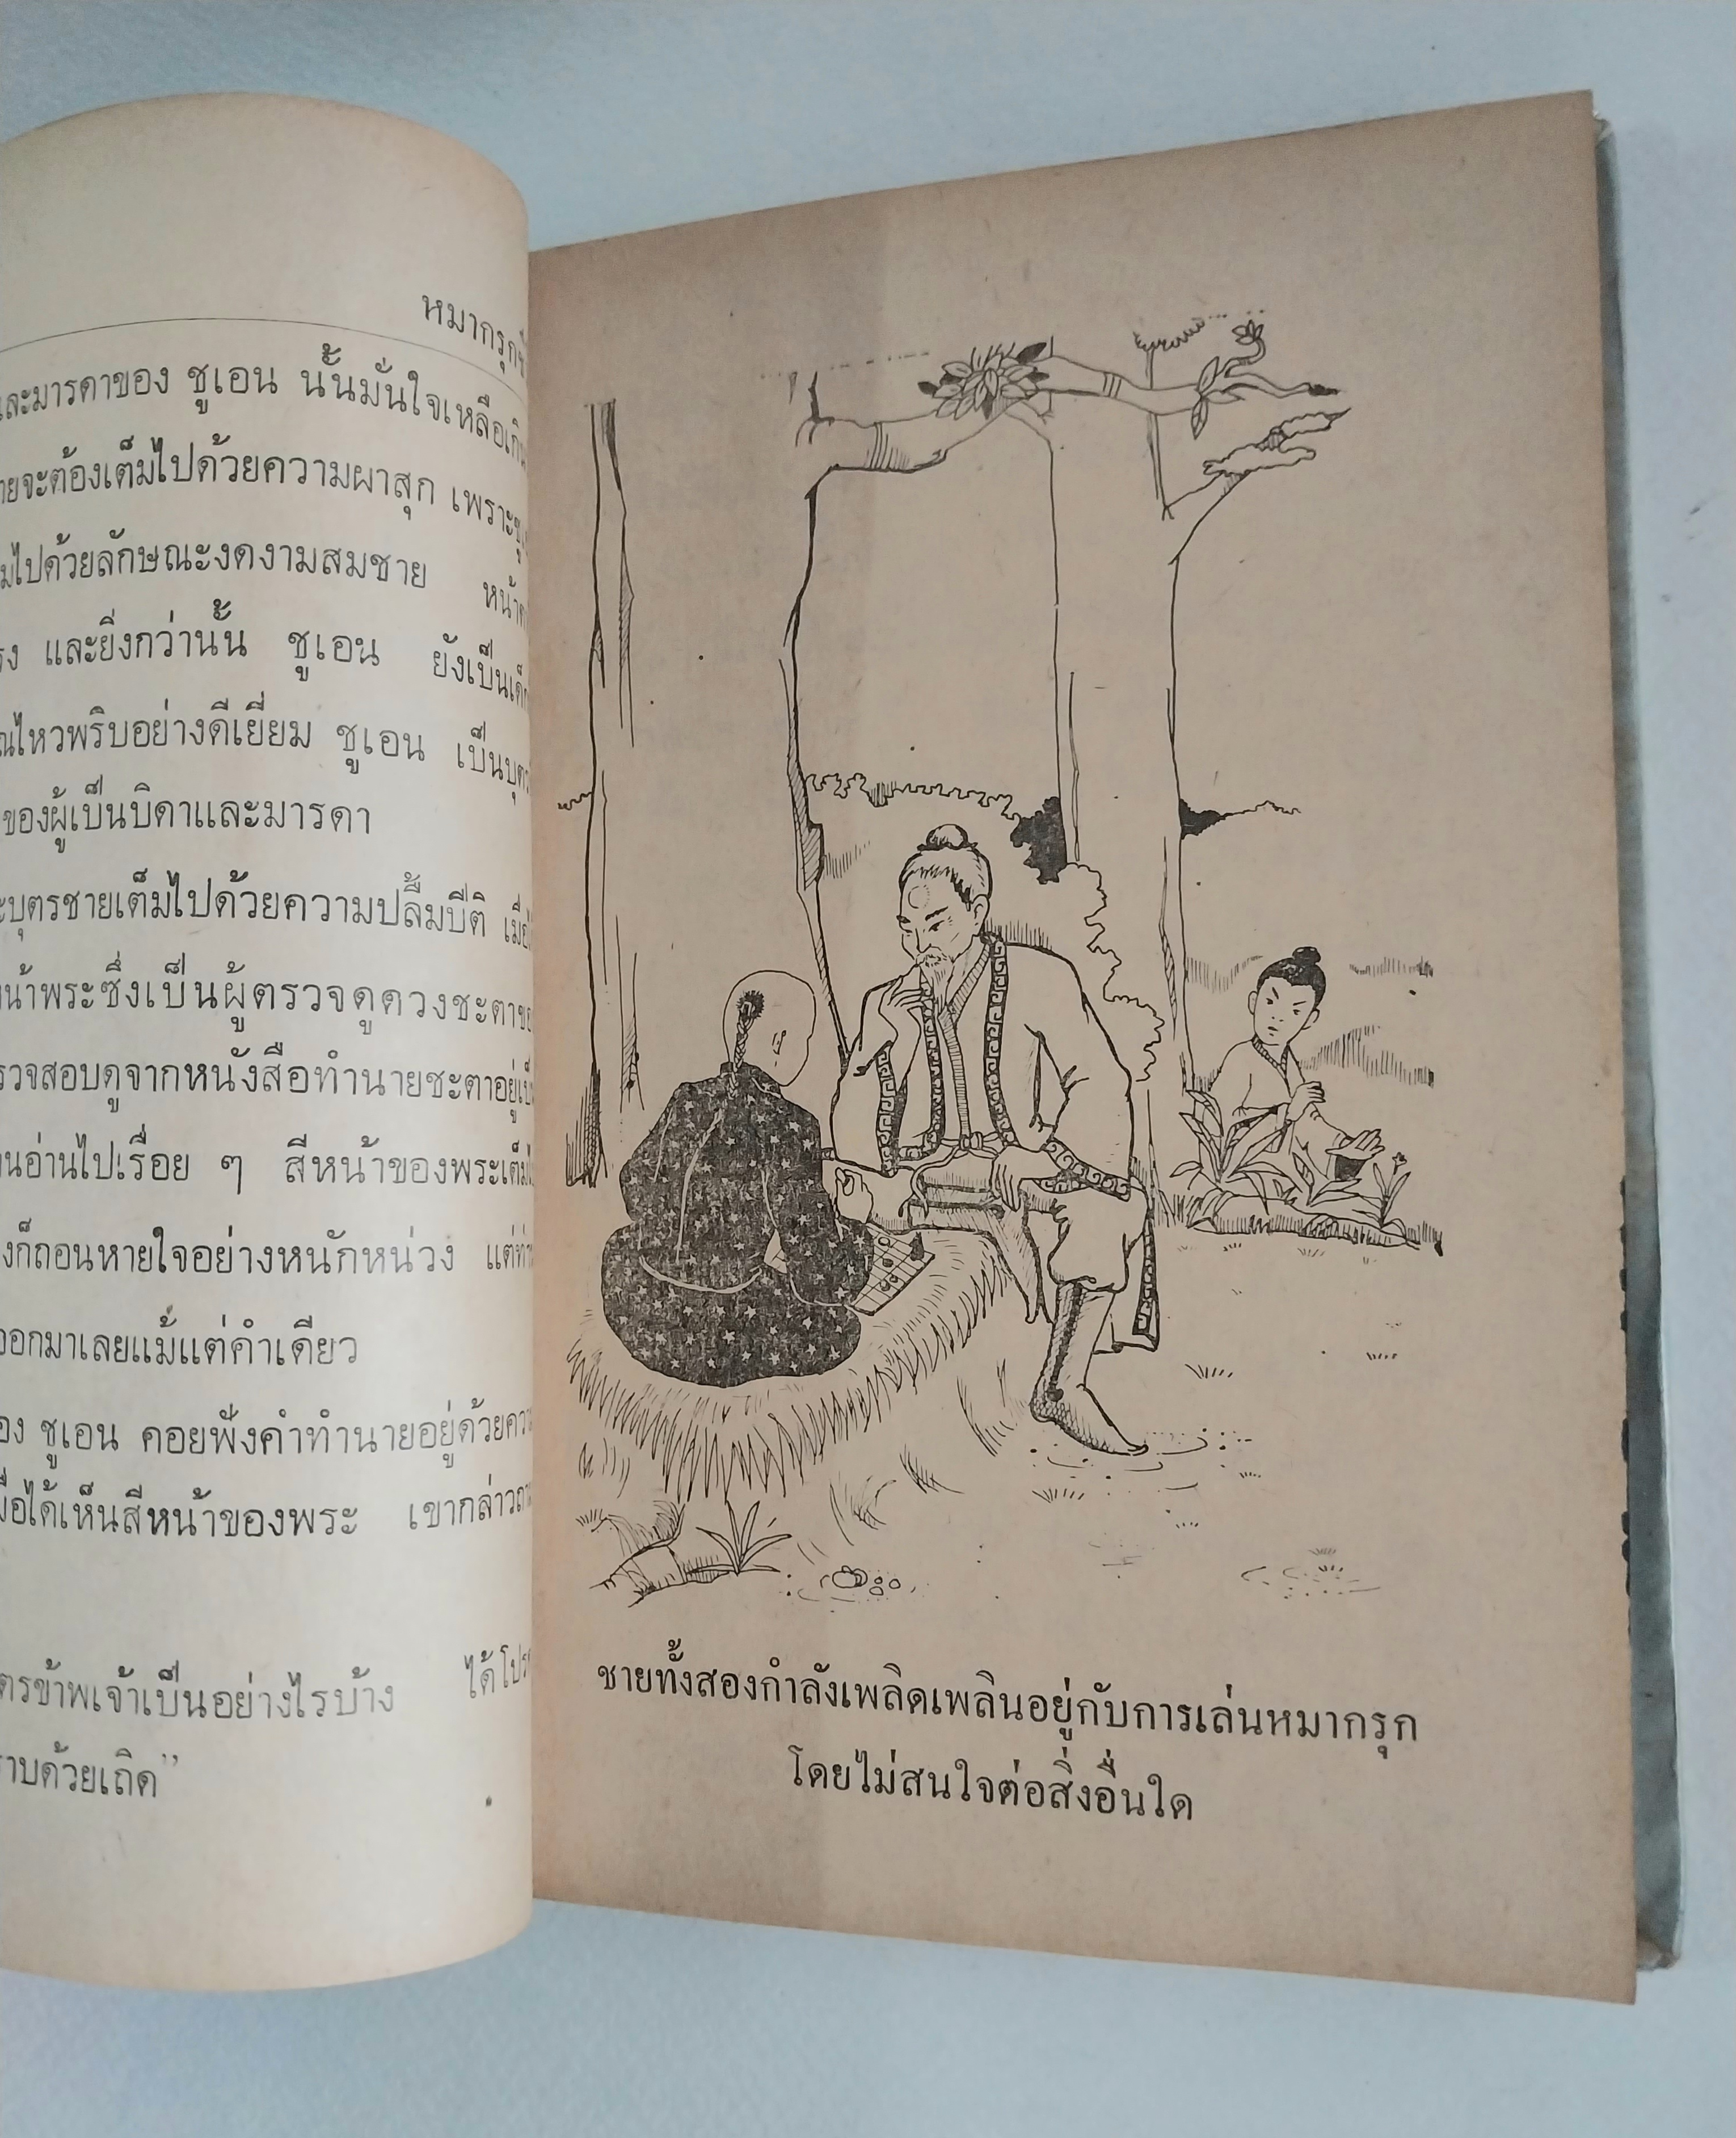 หมากรุก
และมารดาของ ชูเอน นั้นมั่นใจเหลือเกิน
จะต้องเต็มไปด้วยความผาสุก เพราะ
ไปด้วยลักษณะงดงามสมชาย
และยิ่งกว่านั้น ชูเอน ยังเป็นเด็ก
ไหวพริบอย่างดีเยี่ยม ชูเอน เป็นบุตร
ของผู้เป็นบิดาและมารดา
บุตรชายเต็มไปด้วยความปลื้มปีติ
หน้าพระซึ่งเป็นผู้ตรวจดูดวงชะตา
ตรวจสอบดูจากหนังสือทำนายชะตาอยู่
อ่านไปเรื่อย ๆ สีหน้าของพระเต็ม
ก็ถอนหายใจอย่างหนักหน่วง แต่
ออกมาเลยแม้แต่คำเดียว
ของ ชูเอน คอยฟังคำทำนายอยู่ด้วย
ได้เห็นสีหน้าของพระ เขากล่าว
บุตรข้าพเจ้าเป็นอย่างไรบ้าง ได้โปรด
ด้วยเถิด”
ชายทั้งสองกำลังเพลิดเพลินอยู่กับการเล่นหมากรุก
โดยไม่สนใจต่อสิ่งอื่นใด